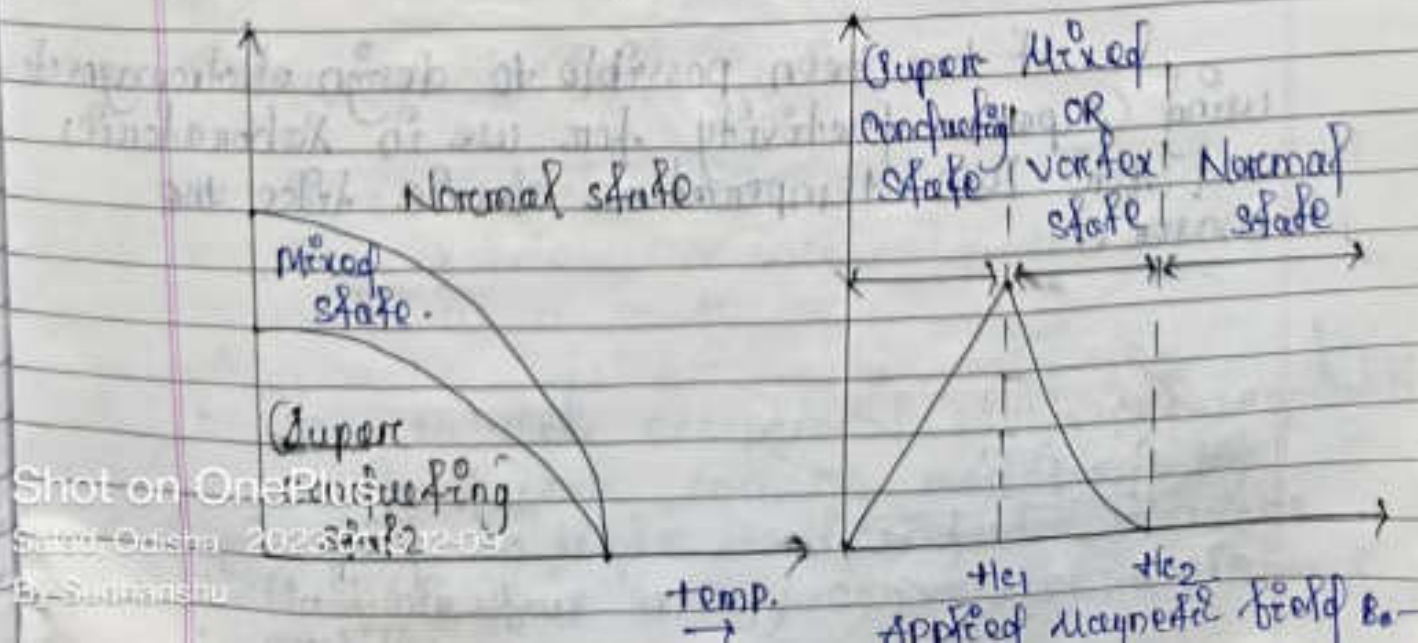 Normal state
Mixed
state.
Super
conducting
state
temp.
Super
conducting
state
Mixed
OR
vortex
state
Normal
state
Hc1
Hc2
Applied Magnetic field B0
Shot on OnePlus
By Sudhanshu